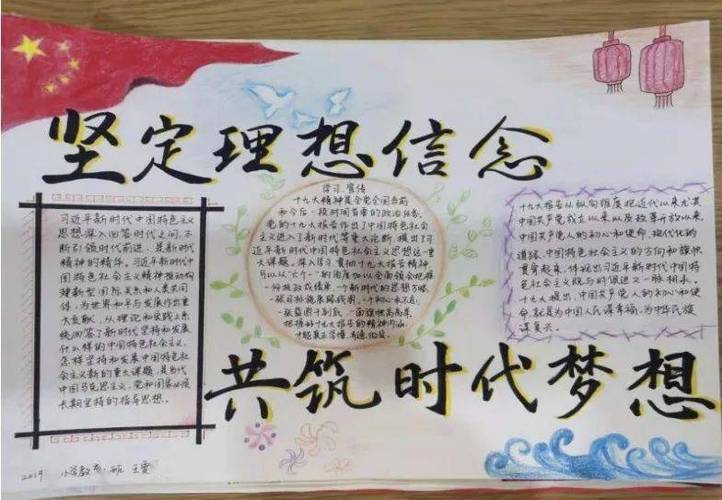 坚定理想信念
习近平新时代中国特色主义
思想深入回答时代之问,不
断引领时代前进,是新时代
精神的精华。习近平新时代中
国特色社会主义精神推动构
建新型国际关系和人类共同
体,为世界和平与发展作出重
大贡献,从理论和实践上系
统回答了新时代坚持和发展
什么样的中国特色社会主义,
怎样坚持和发展中国特色社
会主义新的重大课题,是当代
中国马克思主义,党和国家必须
长期坚持的指导思想。
学习、宣传
十九大精神是全党全国当前
和今后一段时间首要的政治任务。
党的十九大报告作出了中国特色社会
主义进入了新时代等重大论断,提出了习
近平新时代中国特色社会主义思想这一重
大课题,深入学习贯彻十九大报告精神,
可以从"六个一"的角度加以全面领会把握
一份
一个新时代的思想方略、
一个初心永不忘、
一张蓝图干到底、一面旗帜高高举
把握好十九大报告的精神内涵,
才能真正学懂、弄通、做实。
十九大报告从纵向维度把近代以来尤其
中国共产党成立以来以及改革开放以来,
中国共产党人的初心和使命,现代化的
道路、中国特色社会主义的方向和旗帜
贯穿起来,体现出习近平新时代中国特
色社会主义既与时俱进又一脉相承。
十九大提出,中国共产党人的初心和使
命,就是为中国人民谋幸福,为中华民族
谋复兴。
共筑时代梦想
2019 小学教育 班 王雯